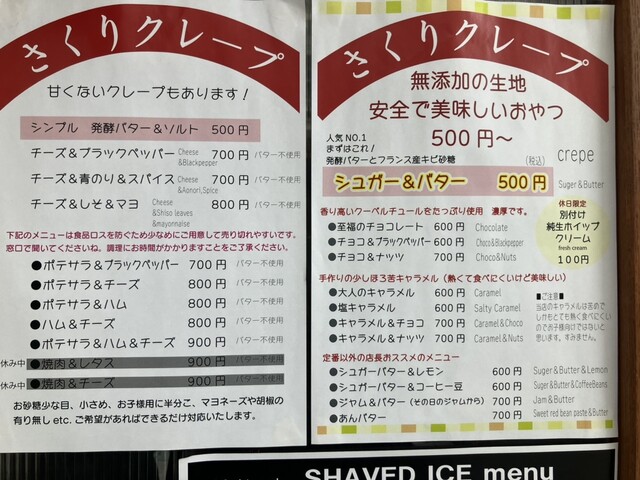 さくりクレープ
甘くないクレープもあります！
シンプル 発酵バター＆ソルト 500円
チーズ＆ブラックペッパー Cheese &Blackpepper 700円 バター不使用
チーズ＆青のり＆スパイス Cheese &Aonori,Spice 700円 バター不使用
チーズ＆しそ＆マヨ Cheese &Shiso leaves &mayonnaise 800円 バター不使用
下記のメニューは食品ロスを防ぐため少なめにご用意して売り切れやすいです。
窓口で聞いてくださいね。調理にお時間がかかりますことをご了承ください。
●ポテサラ＆ブラックペッパー 700円 バター不使用
●ポテサラ＆チーズ 800円 バター不使用
●ポテサラ＆ハム 800円 バター不使用
●ハム＆チーズ 800円 バター不使用
●ポテサラ＆ハム＆チーズ 900円 バター不使用
休み中 ●焼肉＆レタス 900円 バター不使用
休み中 ●焼肉＆チーズ 900円 バター不使用
お砂糖少な目、小さめ、お子様用に半分こ、マヨネーズや胡椒の
有り無し etc. ご希望があればできるだけ対応いたします。
さくりクレープ
無添加の生地
安全で美味しいおやつ
500円〜
人気 NO.1
まずはこれ！
発酵バターとフランス産キビ砂糖
(税込)
crepe
シュガー＆バター 500円
Suger＆Butter
香り高いクーベルチュールをたっぷり使用 濃厚です。
●至福のチョコレート 600円 Chocolate
●チョコ＆ブラックペパー 600円 Choco&Blackpepper
●チョコ＆ナッツ 700円 Choco&Nuts
休日限定
別付け
純生ホイップ
クリーム
fresh cream
100円
手作りの少しほろ苦キャラメル（熱くて食べにくいけど美味しい）
●大人のキャラメル 600円 Caramel
●塩キャラメル 600円 Salty Caramel
●キャラメル＆チョコ 700円 Caramel&Choco
●キャラメル＆ナッツ 700円 Caramel&Nuts
■ご注意■
当店のキャラメルは苦めで
しかもとても熱く食べにくい
のでお子様向けではないと
思います。すみません。
定番以外の店長おススメのメニュー
●シュガーバター＆レモン 600円 Suger&Butter&Lemon
●シュガーバター＆コーヒー豆 600円 Suger&Butter&CoffeeBeans
●ジャム＆バター（その日のジャムから） 700円 Jam&Butter
●あんバター 700円 Sweet red bean paste&Butter
SHAVED ICE menu